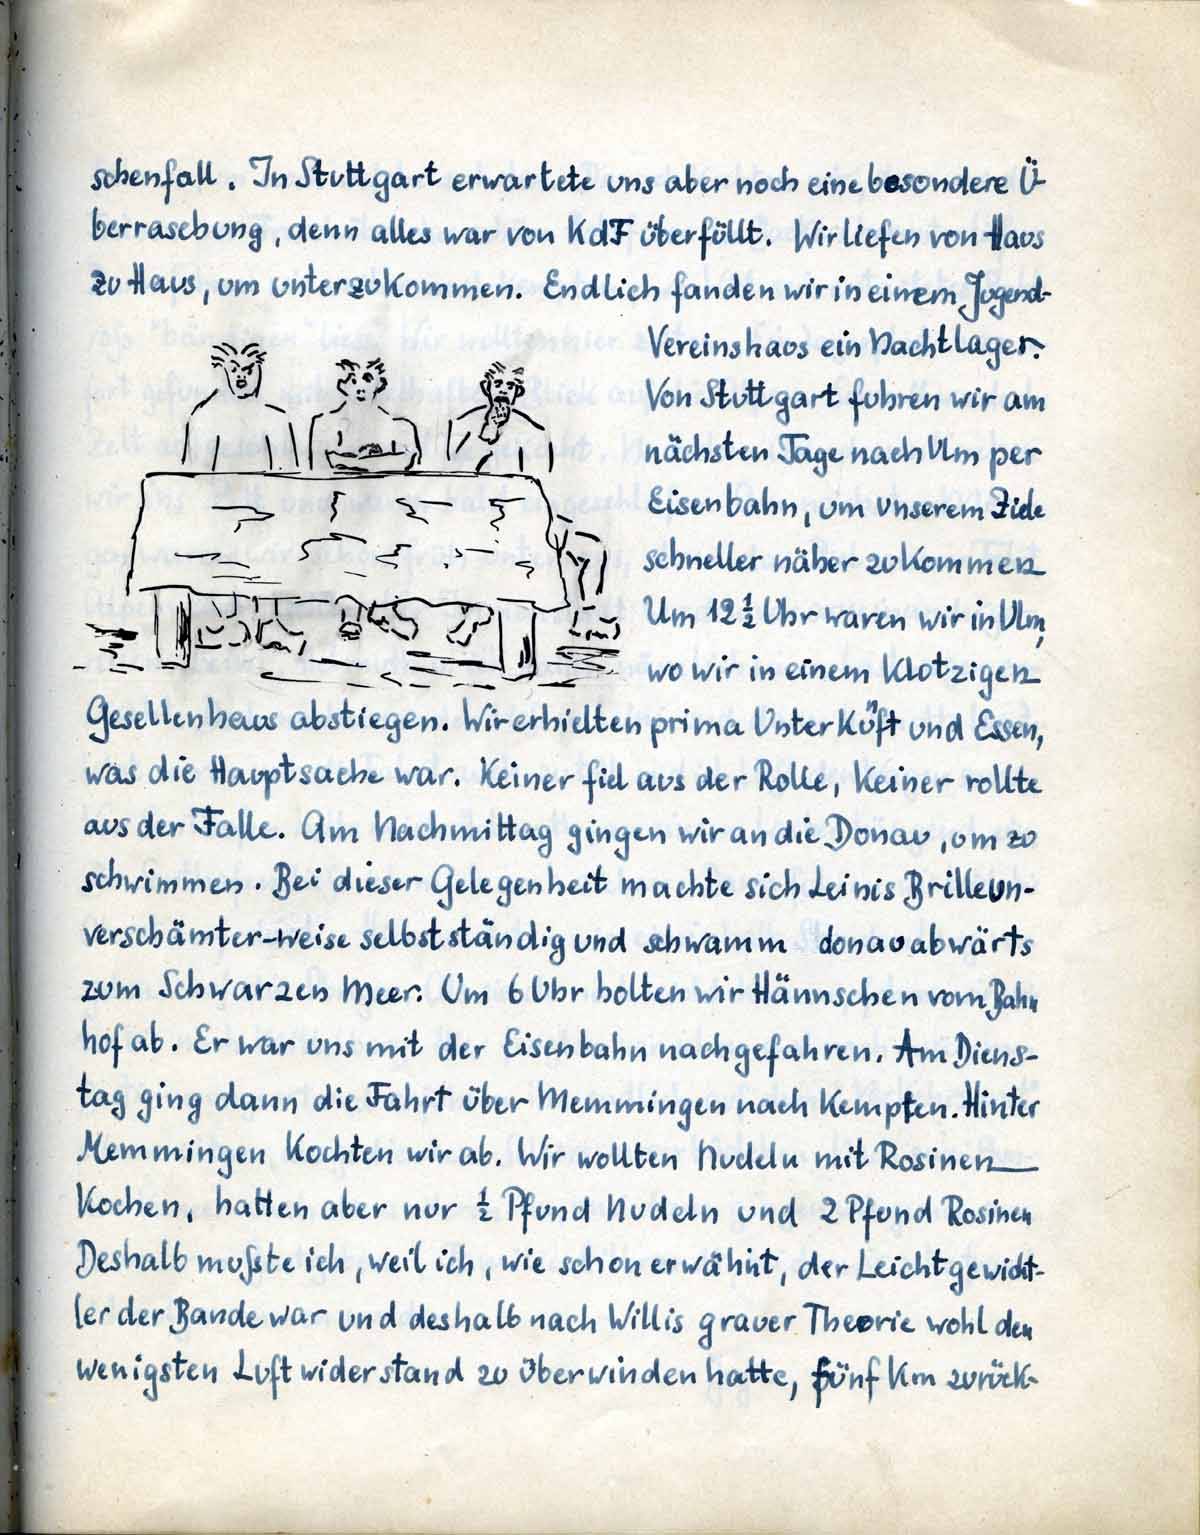 schenfall. In Stuttgart erwartete uns aber noch eine besondere Ü-
berraschung, denn alles war von KdF überfüllt. Wir liefen von Haus
zu Haus, um unterzukommen. Endlich fanden wir in einem Jugend-
Vereinshaus ein Nachtlager.
Von Stuttgart fuhren wir am
nächsten Tage nach Ulm per
Eisenbahn, um unserem Ziele
schneller näher zu kommen
Um 12 ½ Uhr waren wir in Ulm,
wo wir in einem klotzigen
Gesellenhaus abstiegen. Wir erhielten prima Unterkünft und Essen,
was die Hauptsache war. Keiner fiel aus der Rolle, keiner rollte
aus der Falle. Am Nachmittag gingen wir an die Donau, um zu
schwimmen. Bei dieser Gelegenheit machte sich Leinis Brille un-
verschämter-weise selbstständig und schwamm donauabwärts
zum Schwarzen Meer. Um 6 Uhr holten wir Hännschen vom Bahn
hof ab. Er war uns mit der Eisenbahn nachgefahren. Am Diens-
tag ging dann die Fahrt über Memmingen nach Kempten. Hinter
Memmingen kochten wir ab. Wir wollten Nudeln mit Rosinen
kochen, hatten aber nur ½ Pfund Nudeln und 2 Pfund Rosinen
Deshalb mußte ich, weil ich, wie schon erwähnt, der Leichtgewicht-
ler der Bande war und deshalb nach Willis grauer Theorie wohl den
wenigsten Luftwiderstand zu überwinden hatte, fünf Km zurück-